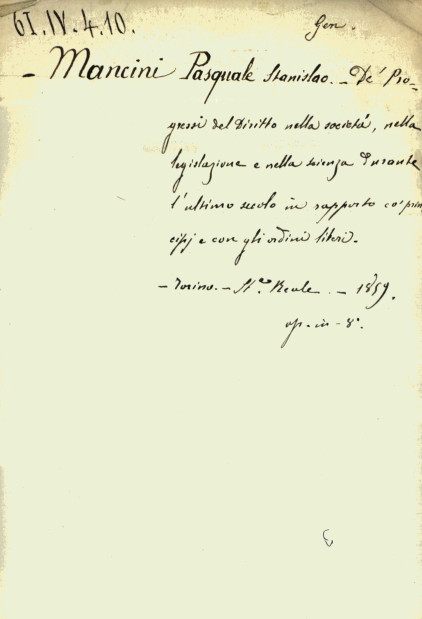 61.IV.4.10.
Gen.
- Mancini Pasquale Stanislao. - De' Pro-
gressi del Diritto nella società, nella
legislazione e nella scienza durante
l'ultimo secolo in rapporto co' prin
cipj e con gli ordini liberi.
- Torino. - St.ª Reale. - 1859.
op. in-8°.